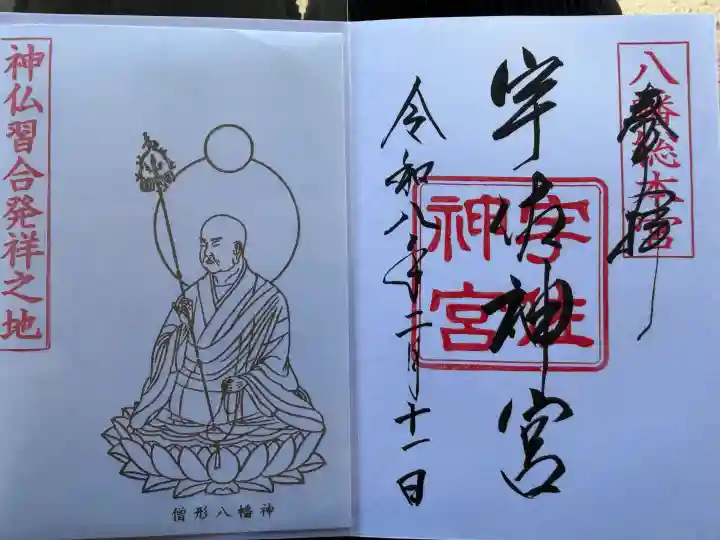 八幡総本宮
奉拝
宇佐神宮
宇佐
神宮
令和八年二月十一日
僧形八幡神
神仏習合発祥之地